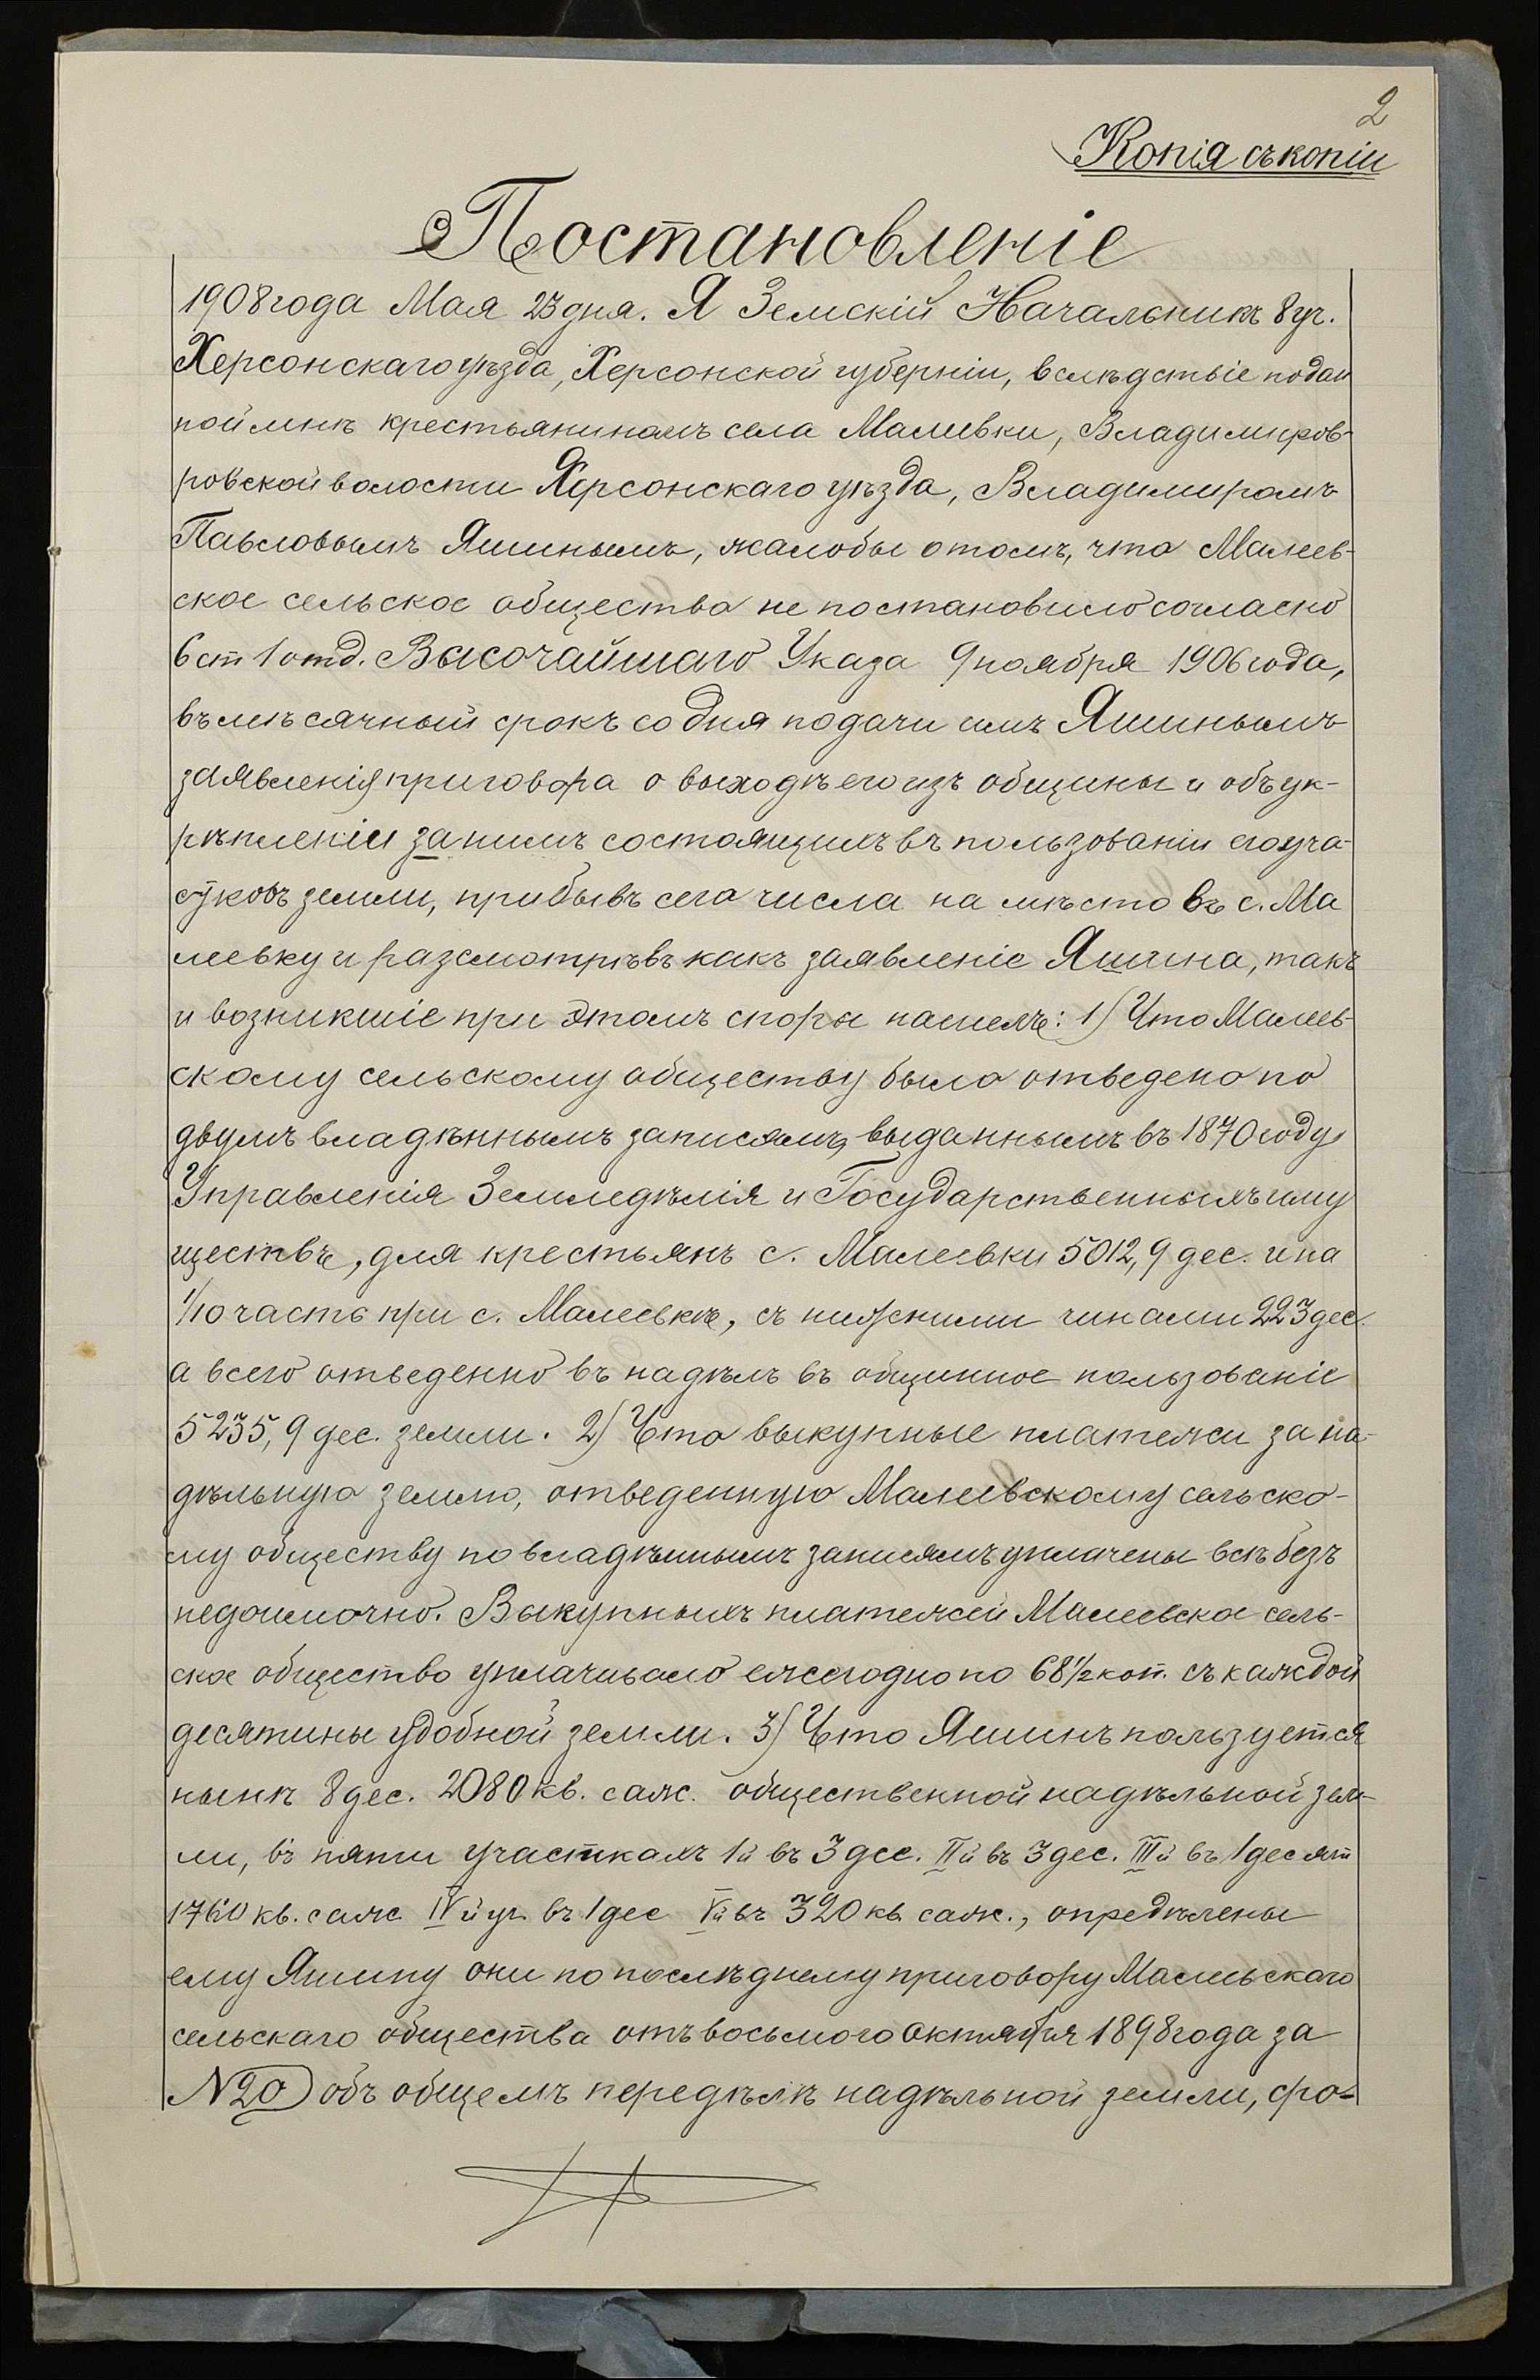 2
Копія съ копіи
Постановленіе
1908 года Мая 23 дня. Я Земскій Начальникъ 8 уч.
Херсонскаго уѣзда, Херсонской губерніи, вслѣдствіе подан
ной мнѣ крестьяниномъ села Малеевки, Владимиров-
ровской волости Херсонскаго уѣзда, Владимиромъ
Павловымъ Яшинымъ, жалобы о томъ, что Малеев-
ское сельское общество не постановило согласно
6 ст 1 отд. Высочайшаго Указа 9 ноября 1906 года,
въ мѣсячный срокъ со дня подачи имъ Яшинымъ
заявленія приговора о выходѣ его изъ общины и объ ук-
рѣпленіи за нимъ состоящихъ въ пользованіи его уча-
стковъ земли, прибывъ сего числа на мѣсто въ с. Ма
леевку и разсмотрѣвъ какъ заявленіе Яшина, такъ
и возникшіе при этомъ споры нашелъ: 1) Что Малеев-
скому сельскому обществу было отведено по
двумъ владѣннымъ записямъ, выданнымъ въ 1870 году
Управленія Земледѣлія и Государственныхъ иму
ществъ, для крестьянъ с. Малеевки 5012,9 дес. и на
1/10 часть при с. Малеевкѣ, съ нижними чинами 223 дес.
а всего отведенно въ надѣлъ въ общинное пользованіе
5235,9 дес. земли. 2) Что выкупные платежи за на-
дѣльную землю, отведенную Малеевскому сельско-
му обществу по владѣннымъ записямъ уплачены всѣ безъ
недоимочно. Выкупныхъ платежей Малеевское сель-
ское общество уплачивало ежегодно по 68 1/2 коп. съ каждой
десятины удобной земли. 3) Что Яшинъ пользуется
нынѣ 8 дес. 2080 кв. саж. общественной надѣльной зем-
ли, въ пяти участкахъ 1й въ 3 дес. IIй въ 3 дес. IIIй въ 1 десят
1760 кв. саж IVй уч. въ 1 дес Vй въ 320 кв саж., опредѣлены
ему Яшину они по послѣднему приговору Малеевскаго
сельскаго общества отъ восьмого Октября 1898 года за
N 20 объ общемъ передѣлѣ надѣльной земли, сро-